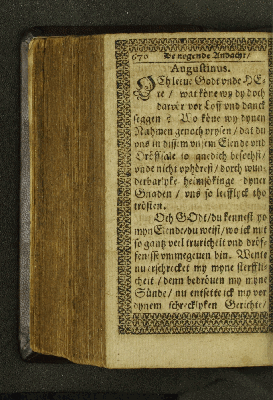 670 De negende Andacht/
Augustinus.
OCh leeue Godt vnde HE-
re / wat köne wy dy doch
daruör vor Loff vnd danck
seggen? Wo köne wy dynen
Nahmen genoch prysen / dat du
vns in dissem vnsem Elende vnd
Dröffsale so gnedich besöchst /
vnde nicht vphörest / dorch wun-
derbarlyke heimsökinge dyner
Gnaden / vns so leefflyck tho
trösten.
Och GOdt / du kennest yo
myn Elende / du weist / wo ick nu
so gantz veel truricheit vnd dröf-
fenisse vmmegeuen bin. Wente
nu erschrecket my myne sterffli-
cheit / denn bedröuen my myne
Sünde / nu entsette ick my vor
dynem schrecklyken Gerichte /